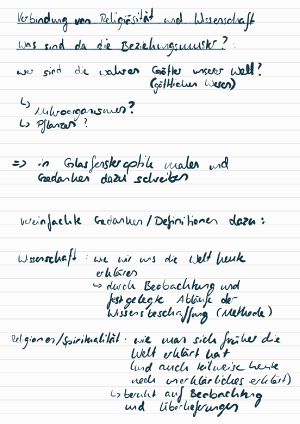 Verbindung von Religiösität und Wissenschaft
Was sind da die Beziehungsmuster?
wer sind die wahren Götter unserer Welt?
(göttlichen Wesen)
↳ Mikroorganismen?
↳ Pflanzen?
=> in Glasfensteroptik malen und
Gedanken dazu schreiben
Vereinfachte Gedanken/Definitionen dazu:
Wissenschaft: wie wir uns die Welt heute
erklären
↳ durch Beobachtung und
festgelegte Abläufe der
Wissensbeschaffung (Methode)
Religionen/Spiritualität: wie man sich früher die
Welt erklärt hat
(und auch teilweise heute
noch unerklärliches erklärt)
↳ beruht auf Beobachtung
und Überlieferungen